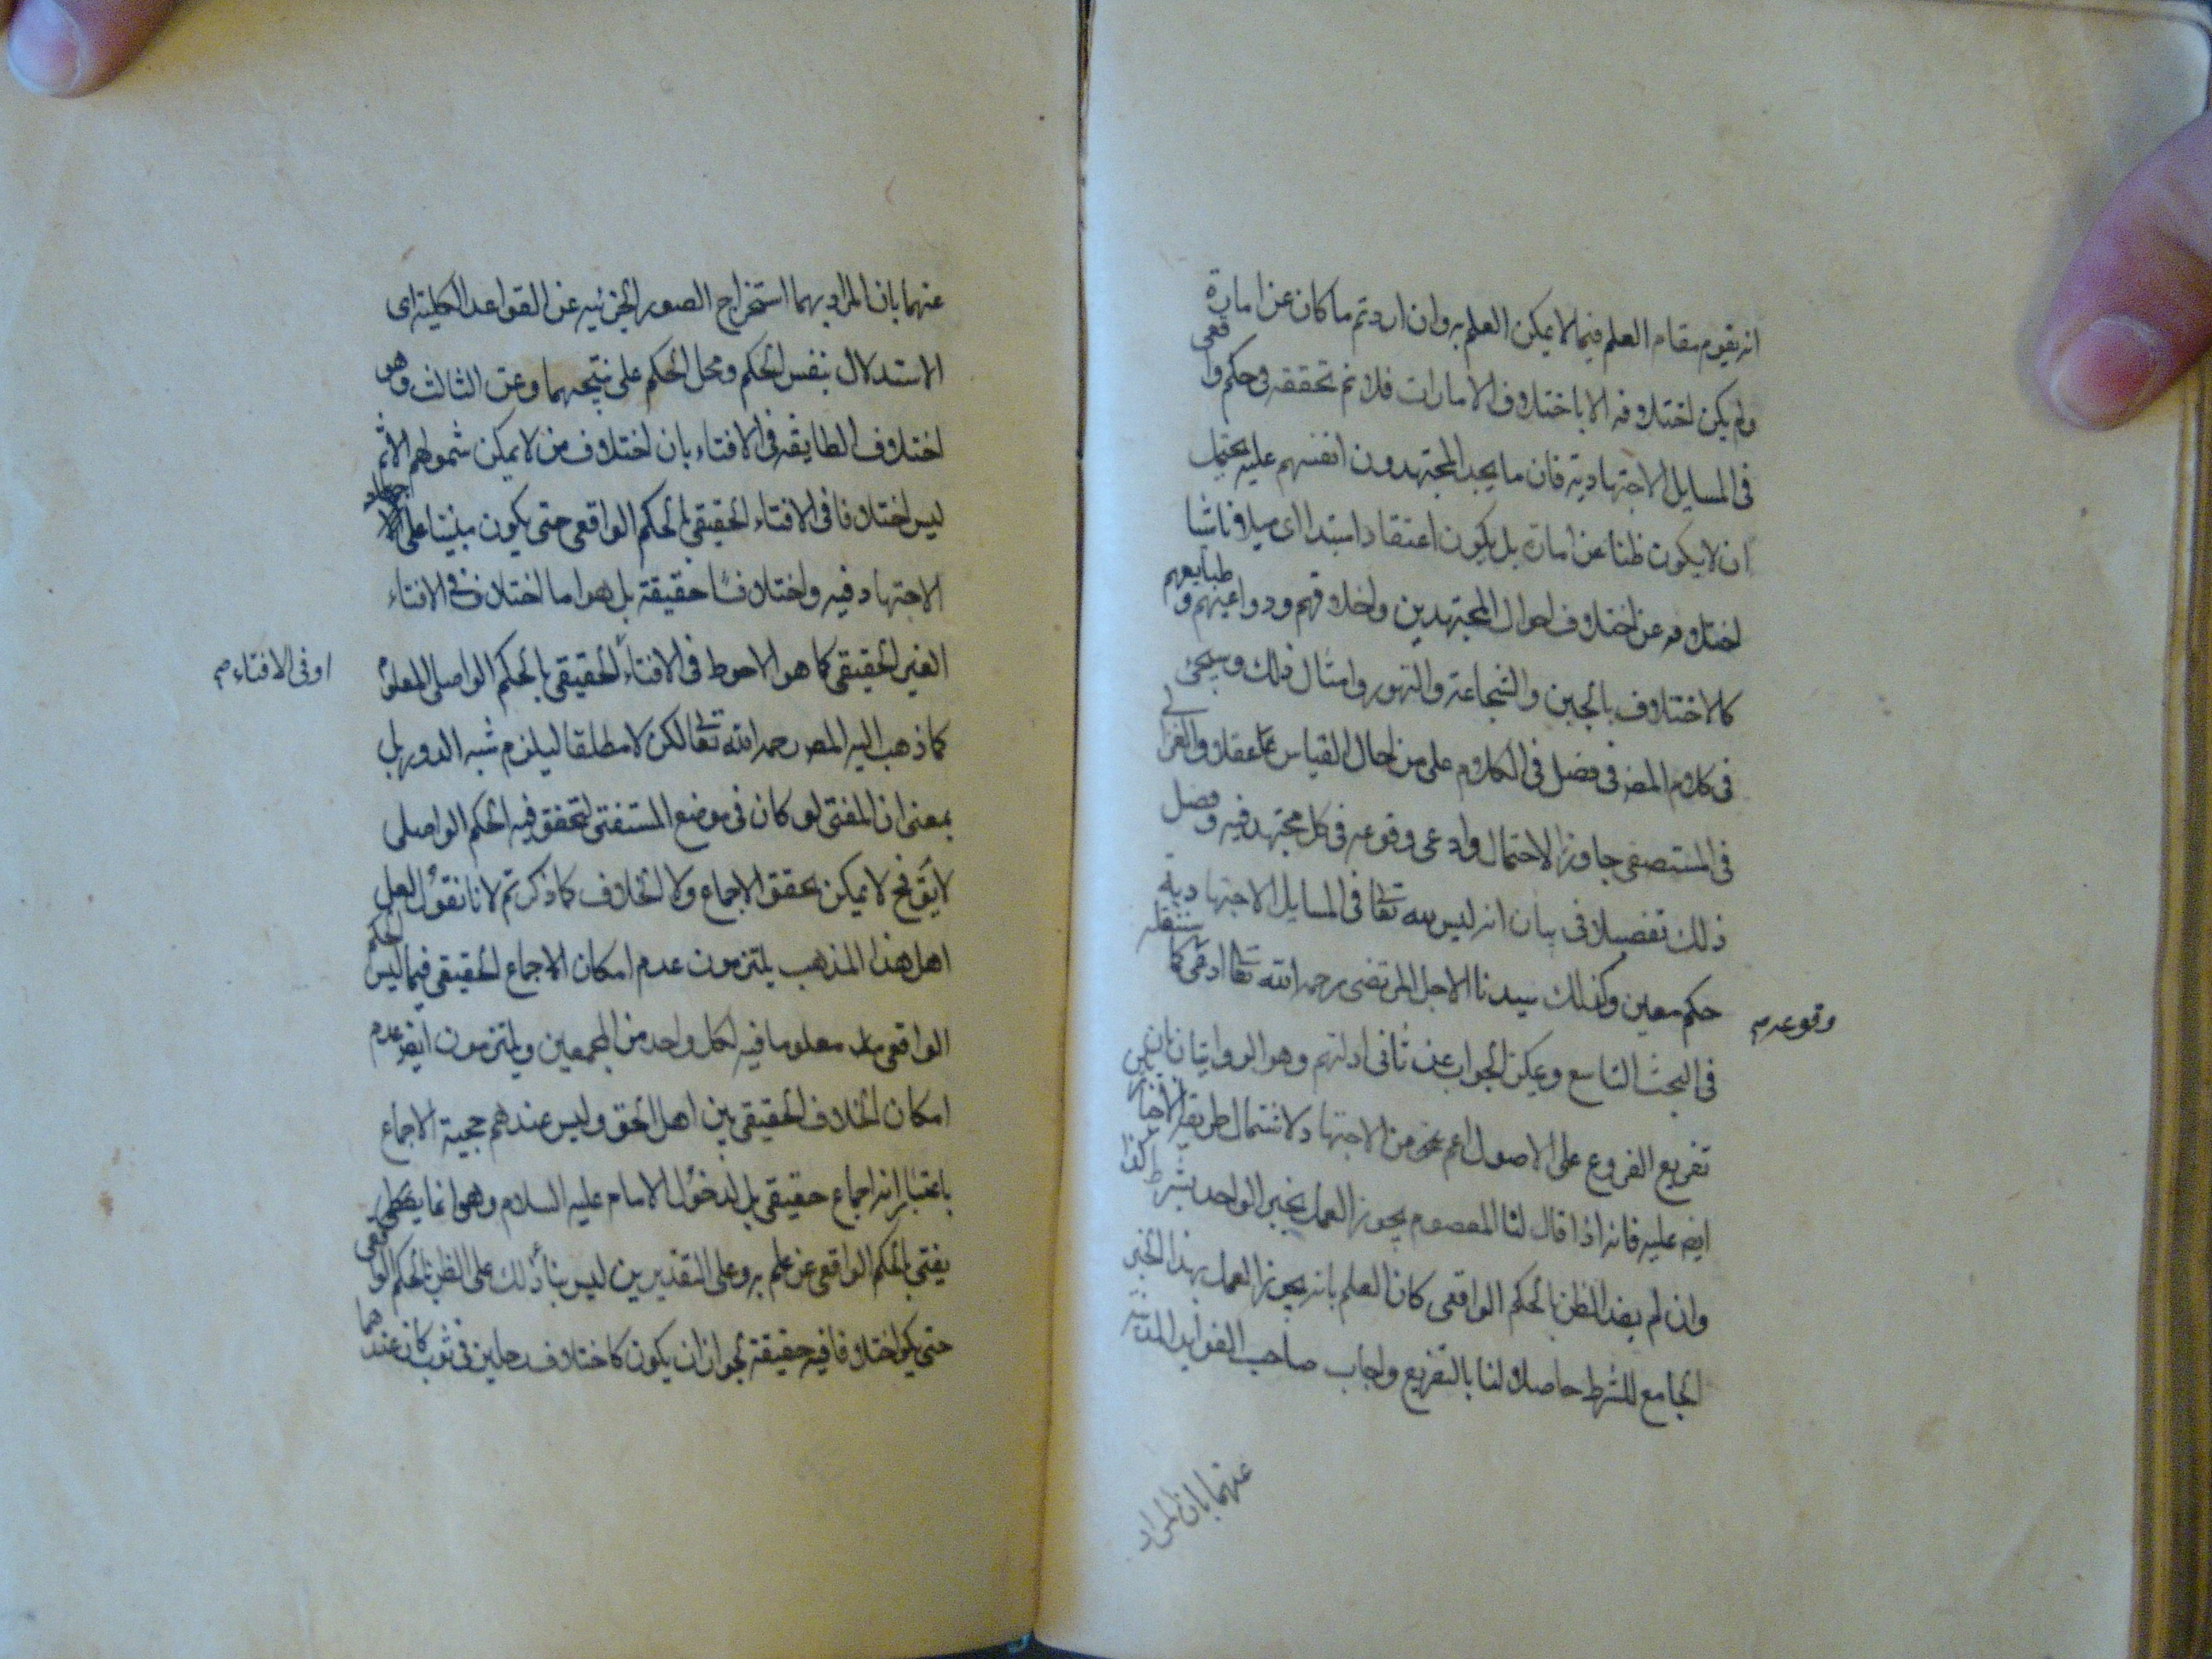 انه يقوم مقام العلم فيما لا يمكن العلم به وان اردتم ما كان عن امارة
ولم يكن اختلافه الا باختلاف الامارات فلا نم تحققه فى حكم واقعى
فى المسايل الاجتهادية فان ما يجد المجتهدون انفسهم عليه يحتمل
ان لا يكون ظنا عن امارة بل يكون اعتقادا مبتدا اى ميلا ناشا
اختلافه عن اختلاف احوال المجتهدين واخلاقهم ودواعيهم وطبايعهم
كالاختلاف بالجبن والشجاعة والتهور وامثال ذلك وسيجئ
فى كلام المصـ فى فصل فى الكلام على من احال القياس عقلا والغزالى
فى المستصفى جاوز الاحتمال وادعى وقوعه فى كل مجتهد فيه وفصل
ذلك تفصيلا فى بيان انه ليس لله تعالى فى المسايل الاجتهادية
حكم معين وكذلك سيدنا الاجل المرتضى رحمه الله تعالى ادعى كما سننقله
وقوعه م
فى البحث التاسع ويمكن الجواب عن ثانى ادلتهم وهو الروايتان بان
تفريع الفروع على الاصول اعم من الاجتهاد لاشتمال طريقة الاخباريين
ايضـ عليه فانه اذا قال لنا المعصوم يجوز العمل بخبر الواحد بشرط كذا
وان لم يفد الظن بالحكم الواقعى كان العلم بانه يجوز العمل بهذا الخبر
الجامع للشرط حاصلا لنا بالتفريع واجاب صاحب الفوايد المدنية
عنهما بان المراد
عنهما بان المراد بهما استخراج الصور الجزئية عن القواعد الكلية اى
الاستدلال بنفس الحكم ومحل الحكم على نتيجهما وعن الثالث وهو
اختلاف الطايفة فى الافتاء بان اختلاف من لا يمكن شمولهم الاثم
ليس اختلافا فى الافتاء الحقيقى بالحكم الواقعى حتى يكون مبنيا على
الاجتهاد فيه واختلافا حقيقة بل هو اما اختلاف فى الافتاء
الغير الحقيقى كما هو الاحوط فى الافتاء الحقيقى بالحكم الواصلى المعلوم
او فى الافتاء م
كما ذهب اليه المصـ رحمه الله تعالى لكن لا مطلقا ليلزم شبه الدور بل
بمعنى ان المفتى لو كان فى موضع المستفتى لتحقق فيه الحكم الواصلى
لا يق فح لا يمكن تحقق الاجماع ولا الخلاف كما ذكرتم لانا نقول لعل
اهل هذا المذهب يلتزمون عدم امكان الاجماع الحقيقى فيما ليس الحكم
الواقعى معلوما فيه لكل واحد من المجمعين ويلتزمون ايضـ عدم
امكان الخلاف الحقيقى بين اهل الحق وليس عندهم حجية الاجماع
باعتبار انه اجماع حقيقى بل لدخول الامام عليه السلام وهو انما
يفتى بالحكم الواقعى عن علم به وعلى التقديرين ليس بنا ذلك على الظن بالحكم الواقعى
حتى يكون اختلافا فيه حقيقة لجواز ان يكون كاختلاف رجلين فى ثوب كان عندهما